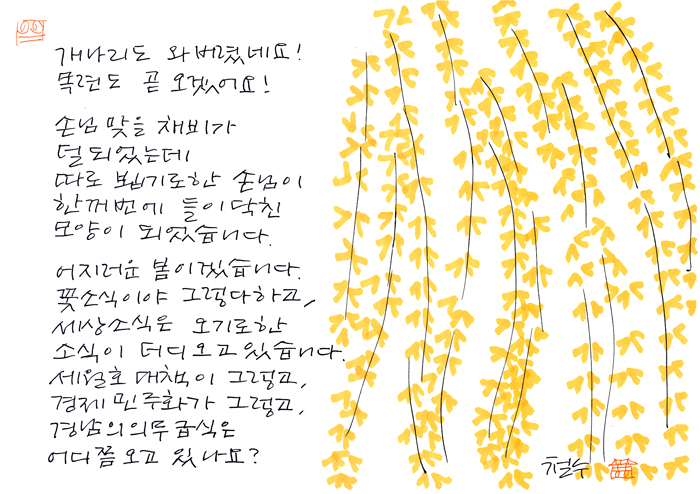 개나리도 와버렸네요!
목련도 곧 오겠어요!
손님 맞을 채비가
덜 되었는데
따로 뵙기로한 손님이
한꺼번에 들이닥친
모양이 되었습니다.
어지러운 봄이겠습니다.
꽃소식이야 그렇다하고,
세상소식은 오기로한
소식이 더디오고 있습니다.
세월호 대책이 그렇고,
경제 민주화가 그렇고,
경남의 의무급식은
어디쯤 오고 있나요?
철수